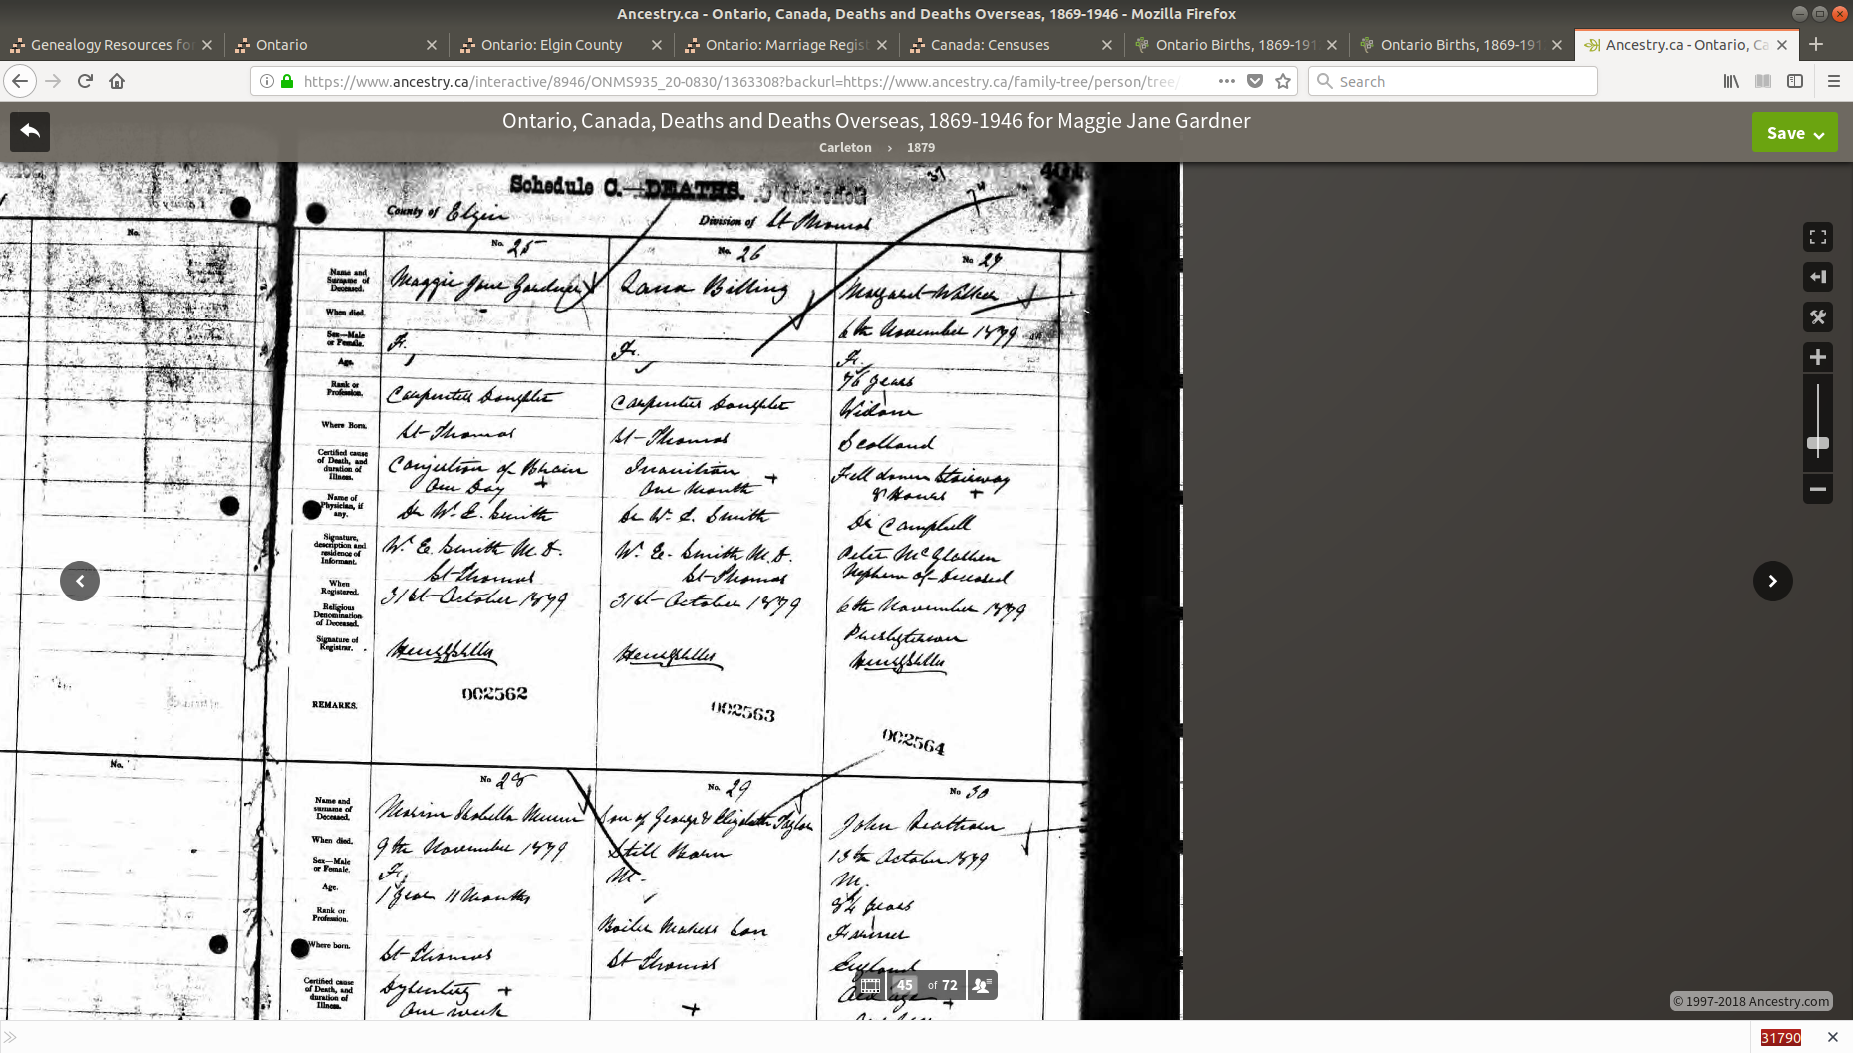 Ancestry.ca - Ontario, Canada, Deaths and Deaths Overseas, 1869-1946 - Mozilla Firefox
Genealogy Resources fo
Ontario
Ontario: Elgin County
Ontario: Marriage Regis
Canada: Censuses
Ontario Births, 1869-191
Ontario Births, 1869-191
Ancestry.ca - Ontario, Ca
https://www.ancestry.ca/interactive/8946/ONMS935_20-0830/1363308?backurl=https://www.ancestry.ca/family-tree/person/tree/
Search
Ontario, Canada, Deaths and Deaths Overseas, 1869-1946 for Maggie Jane Gardner
Carleton › 1879
Save
Schedule C.—DEATHS.
37
401
County of Elgin
Division of St Thomas
No.
No. 25
No. 26
No 27
Name and Surname of Deceased.
Maggie Jane Gardner
Billing
Margaret Walker
When died.
6th November 1879
Sex—Male or Female.
F.
F.
F.
Age.
76 years
Rank or Profession.
Carpenters Daughter
Carpenters Daughter
Widow
Where Born.
St Thomas
St Thomas
Scotland
Certified cause of Death, and duration of Illness.
Congestion of Brain
One Day +
Inanition
One Month +
Fell down Stairway
8 Hours +
Name of Physician, if any.
Dr W. E. Smith
Dr W. E. Smith
Dr Campbell
Signature, description and residence of Informant.
W. E. Smith M.D.
St Thomas
W. E. Smith M.D.
St Thomas
Peter
Nephew of Deceased
When Registered.
31st October 1879
31st October 1879
6th November 1879
Religious Denomination of Deceased.
Presbyterian
Signature of Registrar.
REMARKS.
002562
002563
002564
No.
No 28
No. 29
No 30
Name and surname of Deceased.
Isabella Munn
Son of George & Elizabeth Taylor
John
When died.
9th November 1879
Still Born
13th October 1879
Sex—Male or Female.
F.
M.
M.
Age.
1 year 11 Months
84 years
Rank or Profession.
Boiler Makers Son
Farmer
Where born.
St Thomas
St Thomas
England
Certified cause of Death, and duration of Illness.
Dysentery +
One week
+
Old age +
45 of 72
© 1997-2018 Ancestry.com
31790